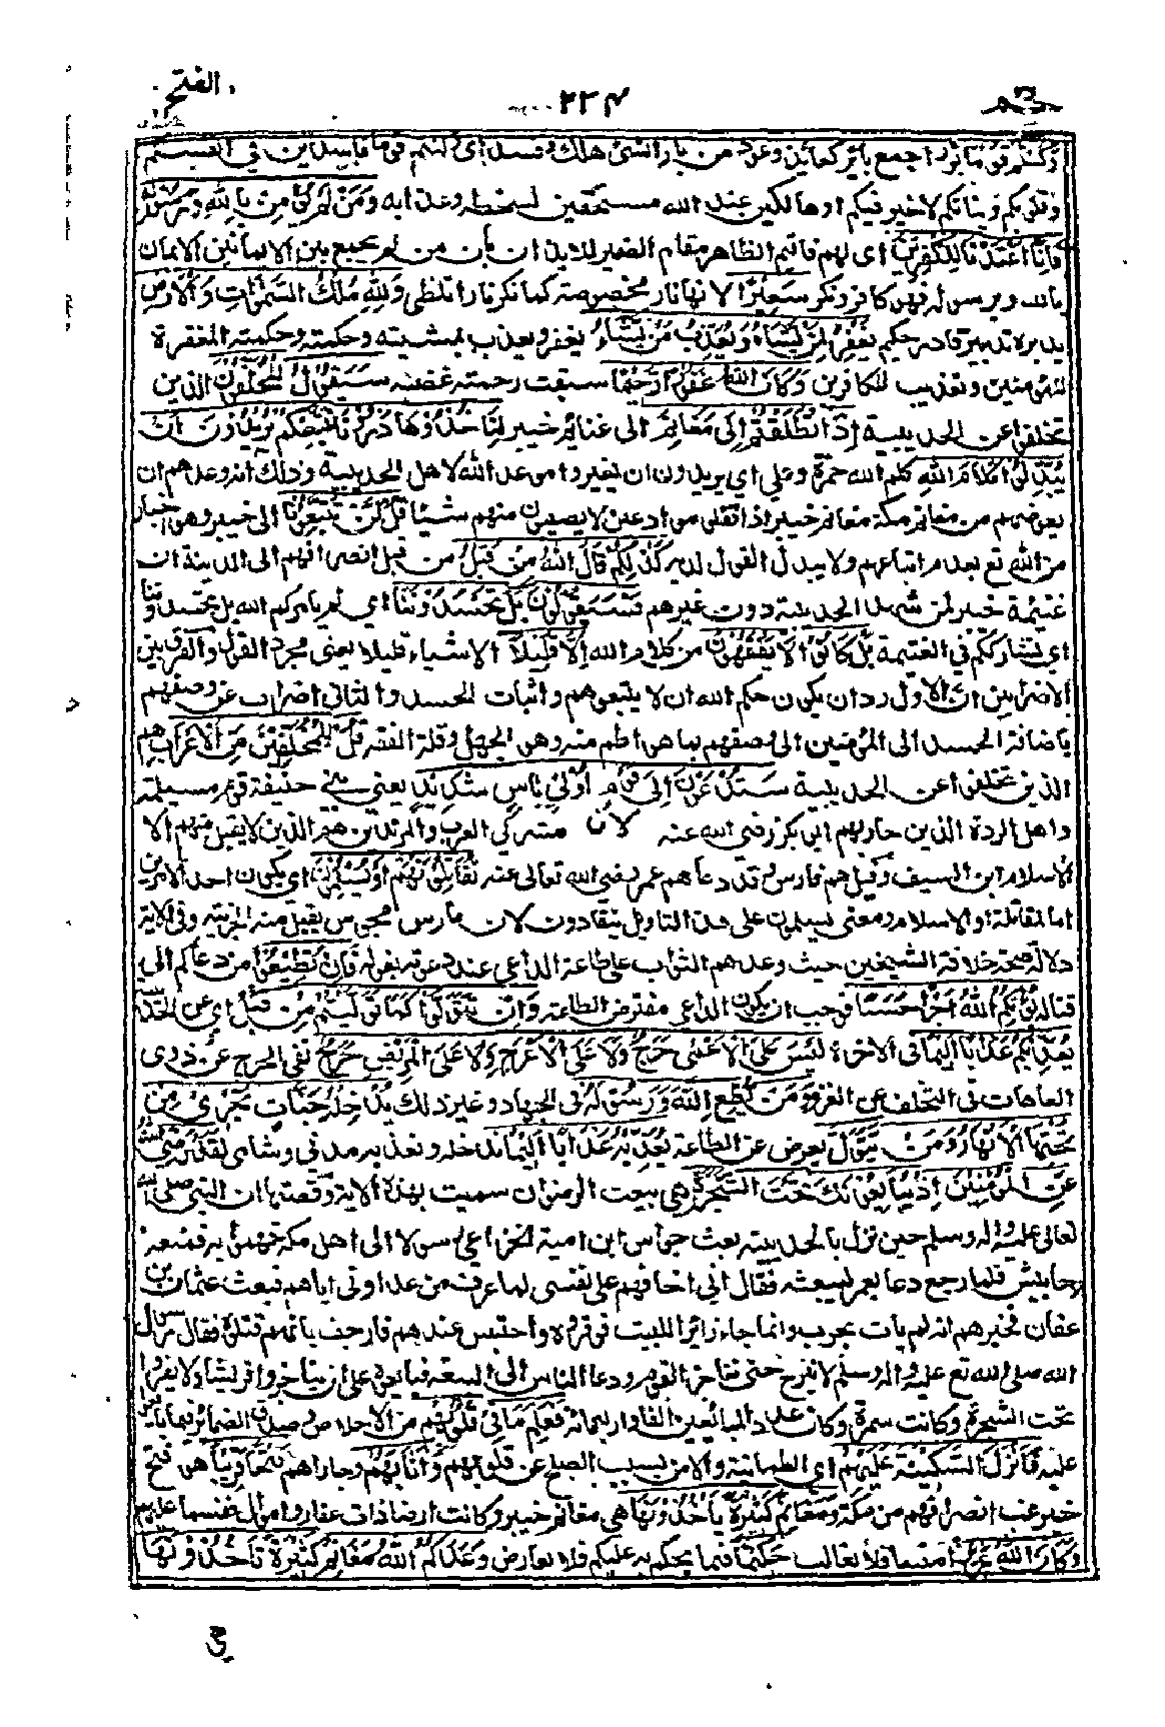 حٰم
٢٣٤
الفتح
وَكُنْتُمْ قَوْمًا بُوْرًا جمع بائر كعائذ وعوذ من بار الشئ هلك وفسد اى كنتم قوما فاسدين فى انفسكم
وقلوبكم ونياتكم لاخير فيكم اوهالكين عند الله مستحقين لسخطه وعذابه وَمَنْ لَّمْ يُؤْمِنْ بِاللّٰهِ وَرَسُوْلِهٖ
فَاِنَّا اَعْتَدْنَا لِلْكٰفِرِيْنَ اى لهم فاقيم الظاهر مقام الضمير للايذان بان من لم يجمع بين الايمانين الايمان
بالله وبرسوله فهو كافر ونكر سَعِيْرًا لانها نار مخصوصة كما نكر نارا تلظى وَلِلّٰهِ مُلْكُ السَّمٰوٰتِ وَالْاَرْضِ
يدبره تدبير قادر حكيم يَغْفِرُ لِمَنْ يَّشَاءُ وَيُعَذِّبُ مَنْ يَّشَاءُ يغفر ويعذب بمشيته وحكمته وحكمته المغفرة
للمؤمنين وتعذيب للكافرين وَكَانَ اللّٰهُ غَفُوْرًا رَّحِيْمًا سبقت رحمته غضبه سَيَقُوْلُ الْمُخَلَّفُوْنَ الذين
تخلفوا عن الحديبية اِذَا انْطَلَقْتُمْ اِلٰى مَغَانِمَ الى غنائم خيبر لِتَاْخُذُوْهَا ذَرُوْنَا نَتَّبِعْكُمْ يُرِيْدُوْنَ اَنْ
يُّبَدِّلُوْا كَلَامَ اللّٰهِ كلم الله حمزة وعلي اي يريدون ان يغيروا موعد الله لاهل الحديبية وذلك انه وعدهم ان
يعوضهم من مغانم مكة مغانم خيبر اذا قفلوا موادعين لا يصيبون منهم شيئا قُلْ لَّنْ تَتَّبِعُوْنَا الى خيبر وهو اخبار
من الله تع بعدم اتباعهم ولا يبدل القول لديه كَذٰلِكُمْ قَالَ اللّٰهُ مِنْ قَبْلُ من قبل انصرافهم الى المدينة ان
غنيمة خيبر لمن شهد الحديبية دون غيرهم فَسَيَقُوْلُوْنَ بَلْ تَحْسُدُوْنَنَا اي لم يامركم الله بل تحسدوننا
اي نشارككم في الغنيمة بَلْ كَانُوْا لَا يَفْقَهُوْنَ من كلام الله اِلَّا قَلِيْلًا الا شيئا قليلا يعني مجرد القول والفرق بين
الاضرابين ان الاول رد ان يكون حكم الله ان لا يتبعوهم واثبات الحسد والثاني اضراب عن وصفهم
باضافة الحسد الى المؤمنين الى وصفهم بما هو اطم منه وهو الجهل وقلة الفقه قُلْ لِّلْمُخَلَّفِيْنَ مِنَ الْاَعْرَابِ هم
الذين تخلفوا عن الحديبية سَتُدْعَوْنَ اِلٰى قَوْمٍ اُولِيْ بَاْسٍ شَدِيْدٍ يعنى بنى حنيفة قوم مسيلمة
واهل الردة الذين حاربهم ابى بكر رضى الله عنه لان مشركى العرب والمرتدين هم الذين لا يقبل منهم الا
الاسلام او السيف وقيل هم فارس وقد دعاهم عمر رضي الله تعالى عنه تُقَاتِلُوْنَهُمْ اَوْ يُسْلِمُوْنَ اي يكون احد الامرين
اما المقاتلة او الاسلام ومعنى يسلمون على هذا التاويل ينقادون لان فارس مجوس يقبل منه الجزية وفى الآية
دلالة صحة خلافة الشيخين حيث وعدهم الثواب على طاعة الداعى عند دعوته بقوله فَاِنْ تُطِيْعُوْا من دعاكم الى
قتاله يُؤْتِكُمُ اللّٰهُ اَجْرًا حَسَنًا فوجب ان يكون الداعى مفترض الطاعة وَاِنْ تَتَوَلَّوْا كَمَا تَوَلَّيْتُمْ مِّنْ قَبْلُ اى عن الحديبية
يُعَذِّبْكُمْ عَذَابًا اَلِيْمًا فى الاخرة لَيْسَ عَلَى الْاَعْمٰى حَرَجٌ وَّلَا عَلَى الْاَعْرَجِ حَرَجٌ وَّلَا عَلَى الْمَرِيْضِ حَرَجٌ نفى الحرج عن ذوى
العاهات فى التخلف عن الغزو وَمَنْ يُّطِعِ اللّٰهَ وَرَسُوْلَهٗ فى الجهاد وغير ذلك يُدْخِلْهُ جَنّٰتٍ تَجْرِيْ مِنْ
تَحْتِهَا الْاَنْهَارُ وَمَنْ يَّتَوَلَّ يعرض عن الطاعة يُعَذِّبْهُ عَذَابًا اَلِيْمًا ندخله ونعذبه مدنى وشامى لَقَدْ رَضِيَ اللّٰهُ
عَنِ الْمُؤْمِنِيْنَ اِذْ يُبَايِعُوْنَكَ تَحْتَ الشَّجَرَةِ هى بيعت الرضوان سميت بهذه الآية وقصتها ان النبى صلى الله
تعالى عليه واله وسلم حين نزل بالحديبية بعث جواس ابن امية الخزاعى رسولا الى اهل مكة فهموا به فمنعه
الاحابيش فلما رجع دعا بعمر ليبعثه فقال انى اخافهم على نفسى لما عرف من عداوتى اياهم فبعث عثمان بن
عفان فخبرهم انه لم يات بحرب وانما جاء زائرا للبيت فوقروه واحتبس عندهم فارجف بانهم قتلوه فقال رسول
الله صلى الله تع عليه واله وسلم لا نبرح حتى نناجز القوم ودعا الناس الى البيعة فبايعوه على ان يناجزوا قريشا ولا يفروا
تحت الشجرة وكانت سمرة وكان عدد المبايعين الفا واربعمائة فَعَلِمَ مَا فِيْ قُلُوْبِهِمْ من الاخلاص وصدق الضمائر فيما بايعوا
عليه فَاَنْزَلَ السَّكِيْنَةَ عَلَيْهِمْ اى الطمانينة والامن بسبب الصلح عن قلوبهم وَاَثَابَهُمْ وجازاهم فَتْحًا قَرِيْبًا هو فتح
خيبر غب انصرافهم من مكة وَمَغَانِمَ كَثِيْرَةً يَّاْخُذُوْنَهَا هى مغانم خيبر وكانت ارضا ذات عقار واموال فقسمها عليهم
وَكَانَ اللّٰهُ عَزِيْزًا منيعا فلا يغالب حَكِيْمًا فيما يحكم به عليكم فلا يعارض وَعَدَكُمُ اللّٰهُ مَغَانِمَ كَثِيْرَةً تَاْخُذُوْنَهَا